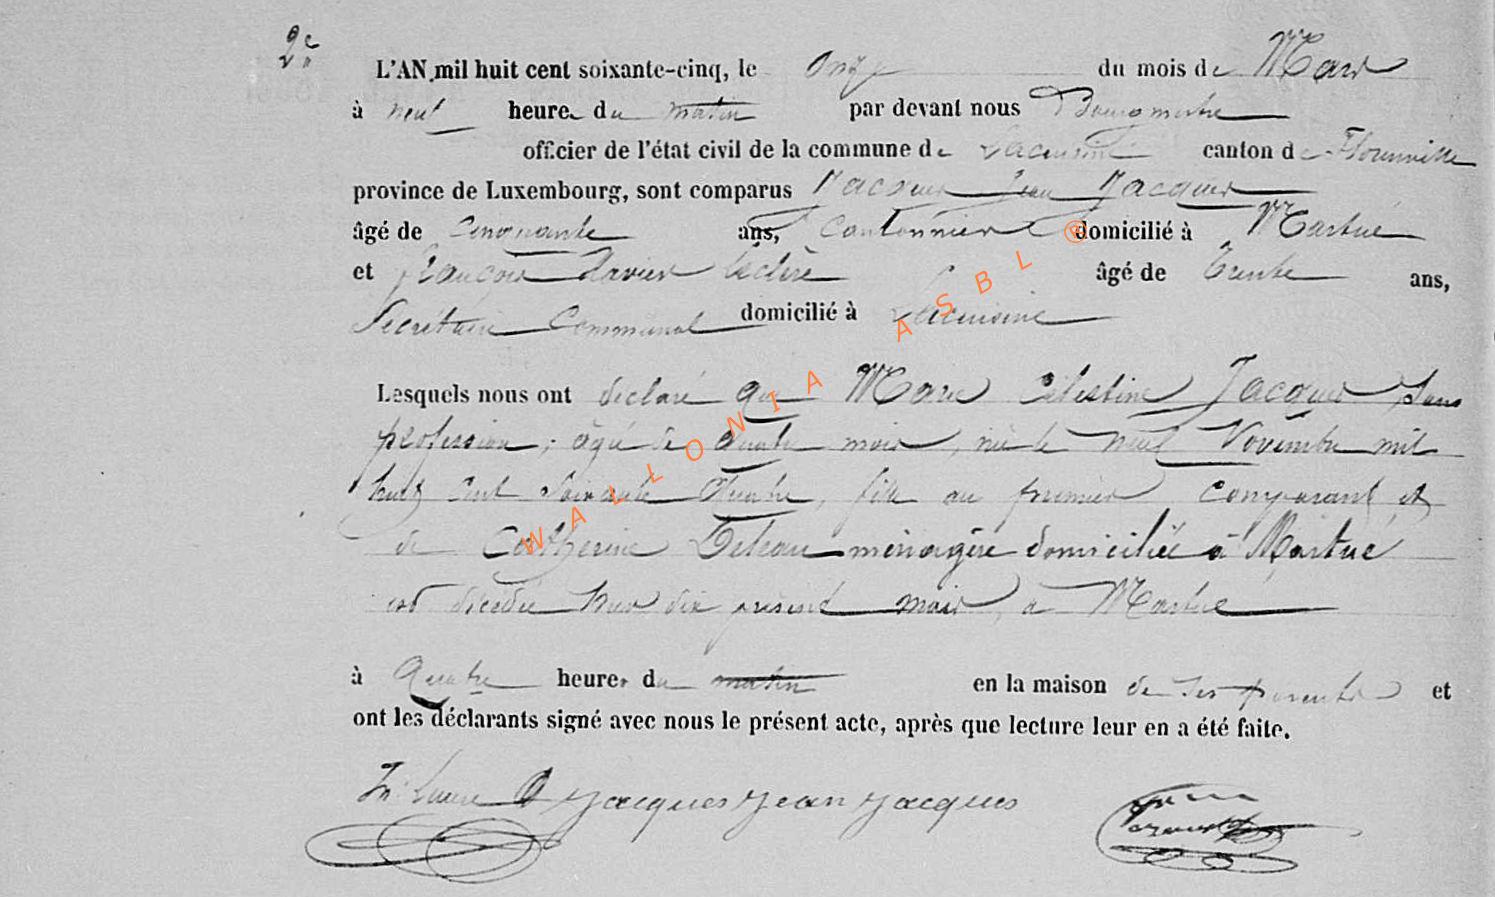 2e
L'AN mil huit cent soixante-cinq, le onze du mois de Mars
à neuf heures du matin par devant nous Bourgmestre
officier de l'état civil de la commune de Lacuisine canton de Florenville
province de Luxembourg, sont comparus Jacques Jean Jacques
âgé de Cinquante ans, Cantonnier domicilié à Martué
et François Xavier Leclère âgé de trente ans,
Secrétaire Communal domicilié à Lacuisine
Lesquels nous ont déclaré que Marie Célestine Jacques sans
profession, âgée de quatre mois, née le neuf Novembre mil
huit cent soixante Quatre, fille au premier comparant et
de Catherine ménagère domiciliée à Martué
est décédée hier dix présent mois, à Martué
à Quatre heures du matin en la maison de ses parents et
ont les déclarants signé avec nous le présent acte, après que lecture leur en a été faite.
Jacques Jean Jacques
WALLONIA ASBL ®